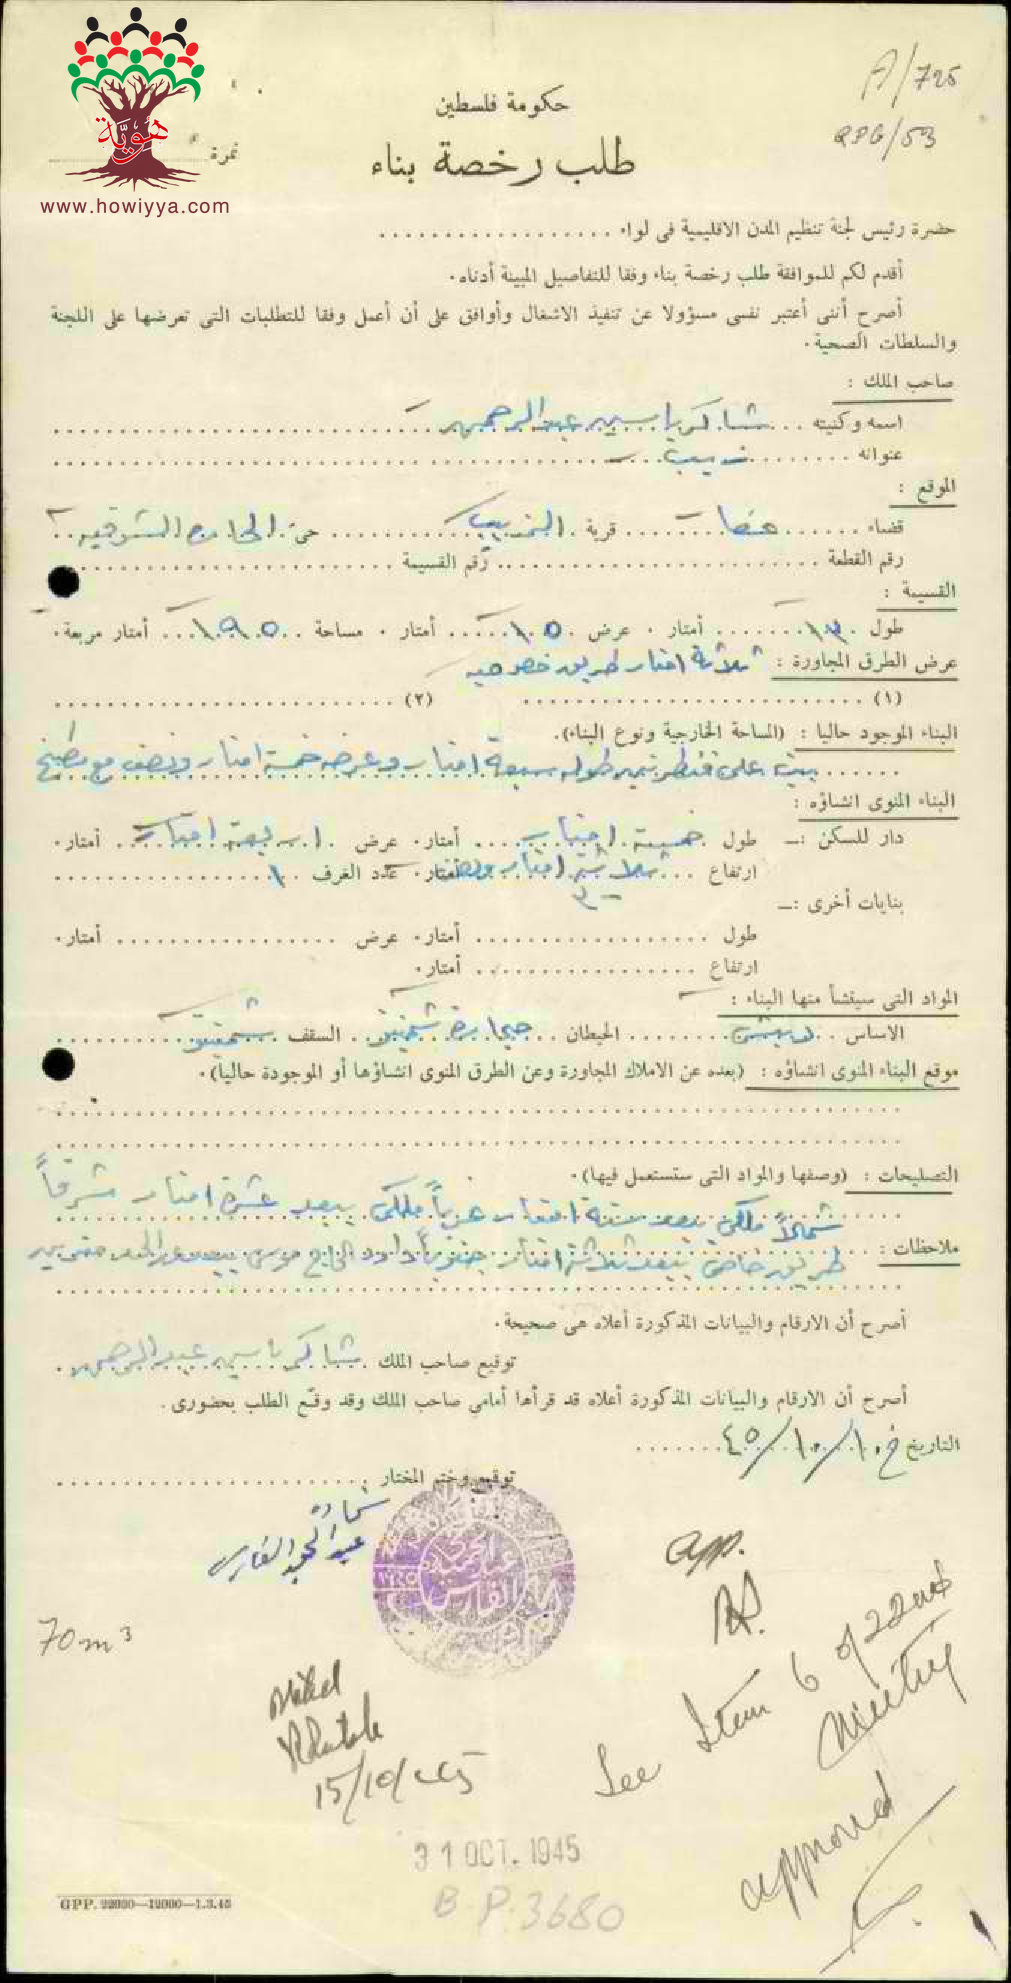 A/725
QPG/53
هُويَّة
www.howiyya.com
حكومة فلسطين
نمرة
طلب رخصة بناء
حضرة رئيس لجنة تنظيم المدن الاقليمية فى لواء
أقدم لكم للموافقة طلب رخصة بناء وفقا للتفاصيل المبينة أدناه.
أصرح أننى أعتبر نفسى مسؤولا عن تنفيذ الاشغال وأوافق على أن أعمل وفقا للمتطلبات التى تعرضها على اللجنة
والسلطات الصحية.
صاحب الملك :
اسمه وكنيته شاكر ياسين عبد الرحمن
عنوانه زيب
الموقع :
قضاء عكا قرية الزيب حى الحارة الشرقيه
رقم القطعة رقم القسيمة
القسيمة :
طول ١٣ أمتار. عرض ١٥ أمتار. مساحة ١٩٥ أمتار مربعة.
عرض الطرق المجاورة : ثلاثة امتار طريق خصوصيه
(١) (٢)
البناء الموجود حاليا : (المساحة الخارجية ونوع البناء).
بيت على قنطرتين طوله سبعة امتار وعرضه خمسة امتار ونصف مع مطبخ
البناء المنوى انشاؤه :
دار للسكن :— طول خمسة امتار أمتار. عرض اربعة امتار أمتار.
ارتفاع ثلاثة امتار ونصف أمتار. عدد الغرف ١
بنايات أخرى :—
طول أمتار. عرض أمتار.
ارتفاع أمتار.
المواد التى سينشأ منها البناء :
الاساس دبش الحيطان حجارة شمينتو السقف شمينتو
موقع البناء المنوى انشاؤه : (بعده عن الاملاك المجاورة وعن الطرق المنوى انشاؤها أو الموجودة حاليا).
التصليحات : (وصفها والمواد التى ستستعمل فيها).
شمالاً ملكي يبعد ستة امتار غرباً ملكي يبعد عشرة امتار شرقاً
ملاحظات : طريق خاص يبعد ثلاثة امتار جنوباً داود الحاج موسى يبعد عن الحد مترين
أصرح أن الارقام والبيانات المذكورة أعلاه هى صحيحة.
توقيع صاحب الملك شاكر ياسين عبد الرحمن
أصرح أن الارقام والبيانات المذكورة أعلاه قد قرأها أمامي صاحب الملك وقد وقّع الطلب بحضورى.
التاريخ في ١٠/١٠/٤٥
توقيع وختم المختار
عبد المجيد الفارس
app.
70 m³
See Item 6 of 22nd
meeting
15/10/45
approved
31 OCT. 1945
B.P. 3680
GPP. 22000—12000—1.3.45